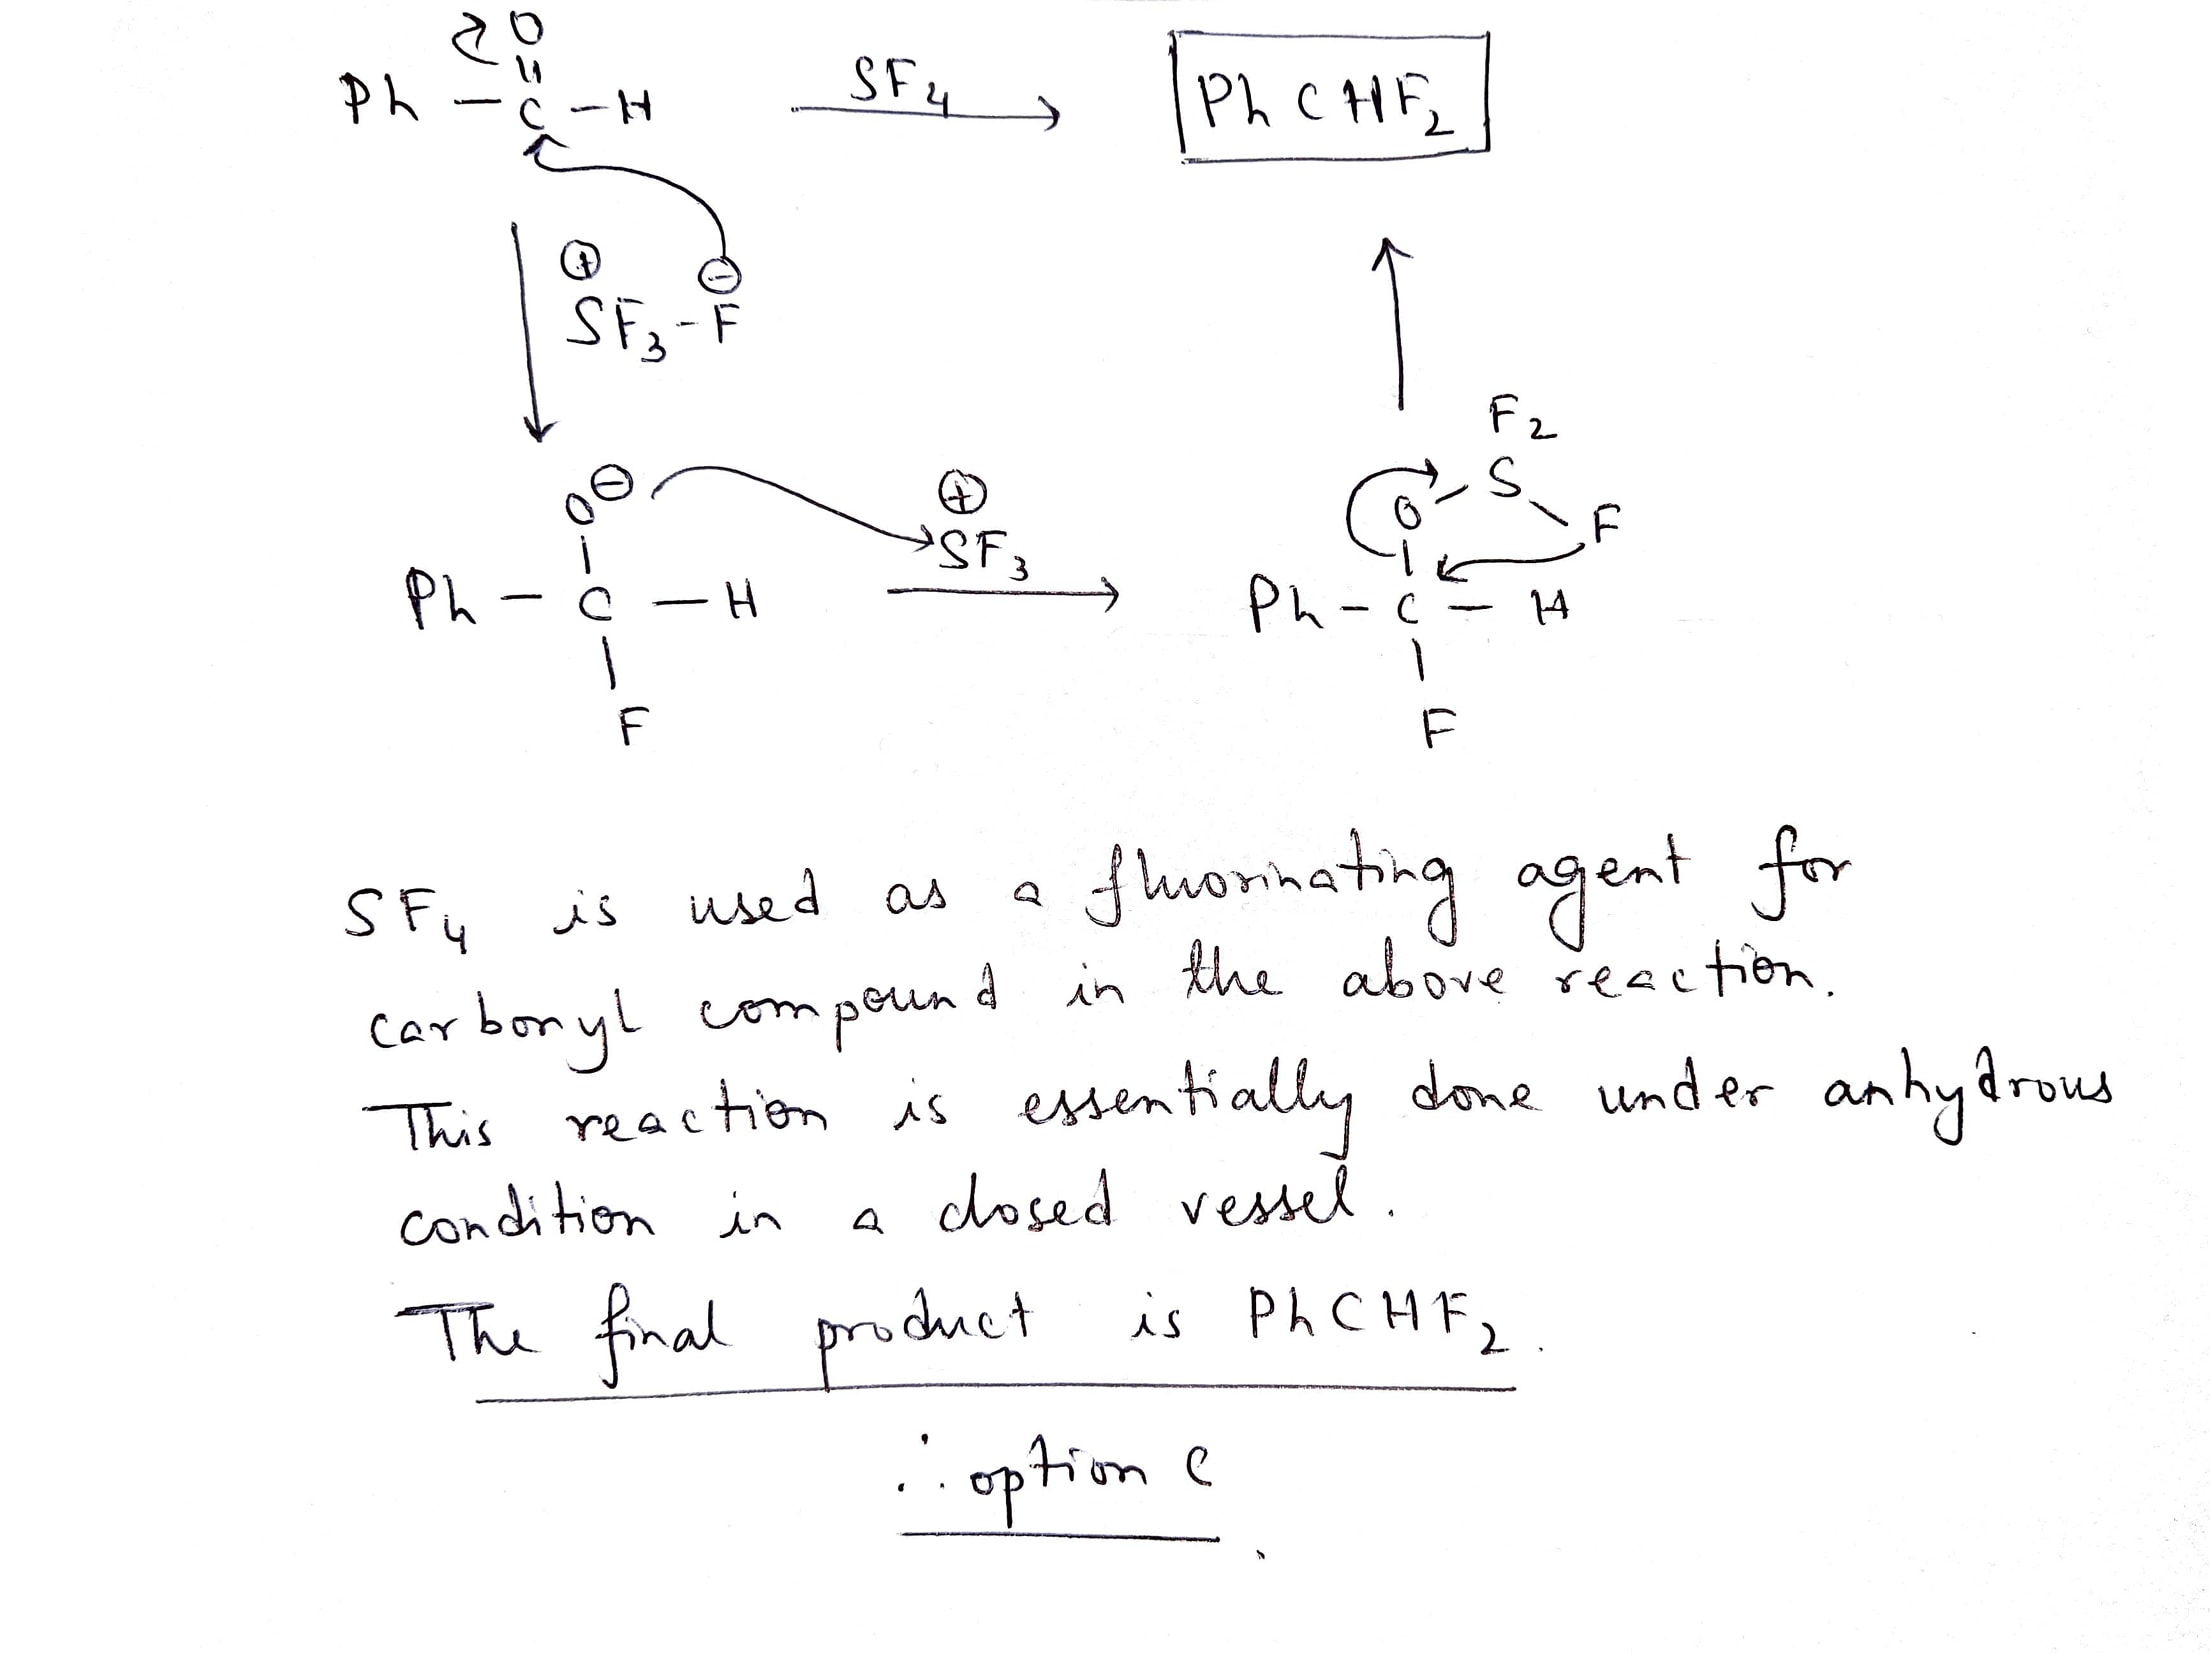 O
Ph - C - H SF4 PhCHF2
⊕ ⊖
SF3 - F
F2
O⊖ ⊕ O - S
SF3 F
Ph - C - H Ph - C - H
F F
SF4 is used as a fluorinating agent for
carbonyl compound in the above reaction.
This reaction is essentially done under anhydrous
condition in a closed vessel.
The final product is PhCHF2.
∴ option C